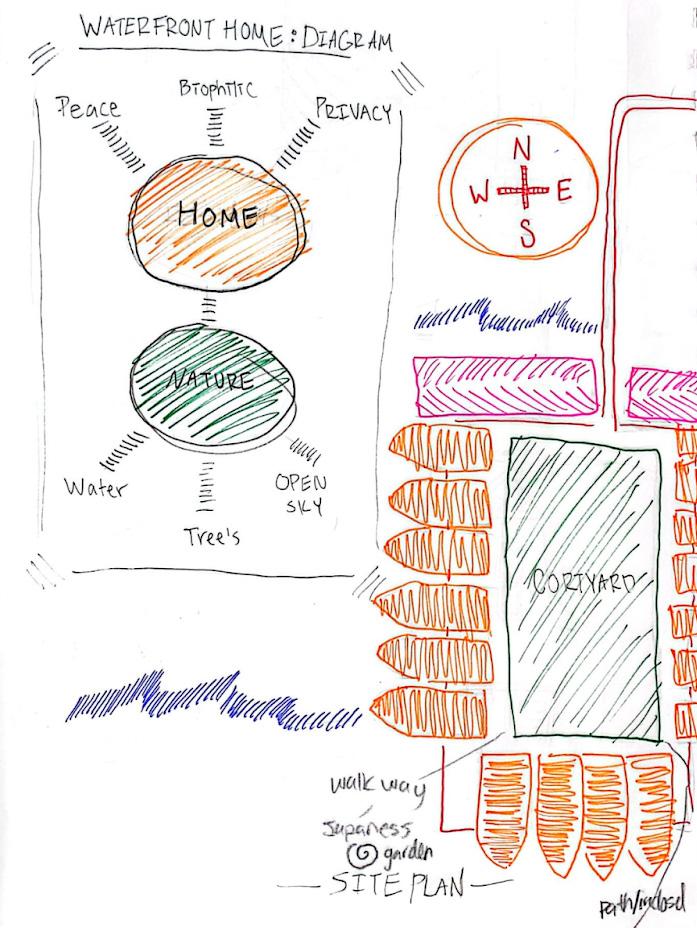 WATERFRONT HOME: DIAGRAM
Peace
BIOPHILIC
PRIVACY
HOME
NATURE
Water
Tree's
OPEN
SKY
N
W E
S
CORTYARD
walk way
Japaness
garden
SITE PLAN